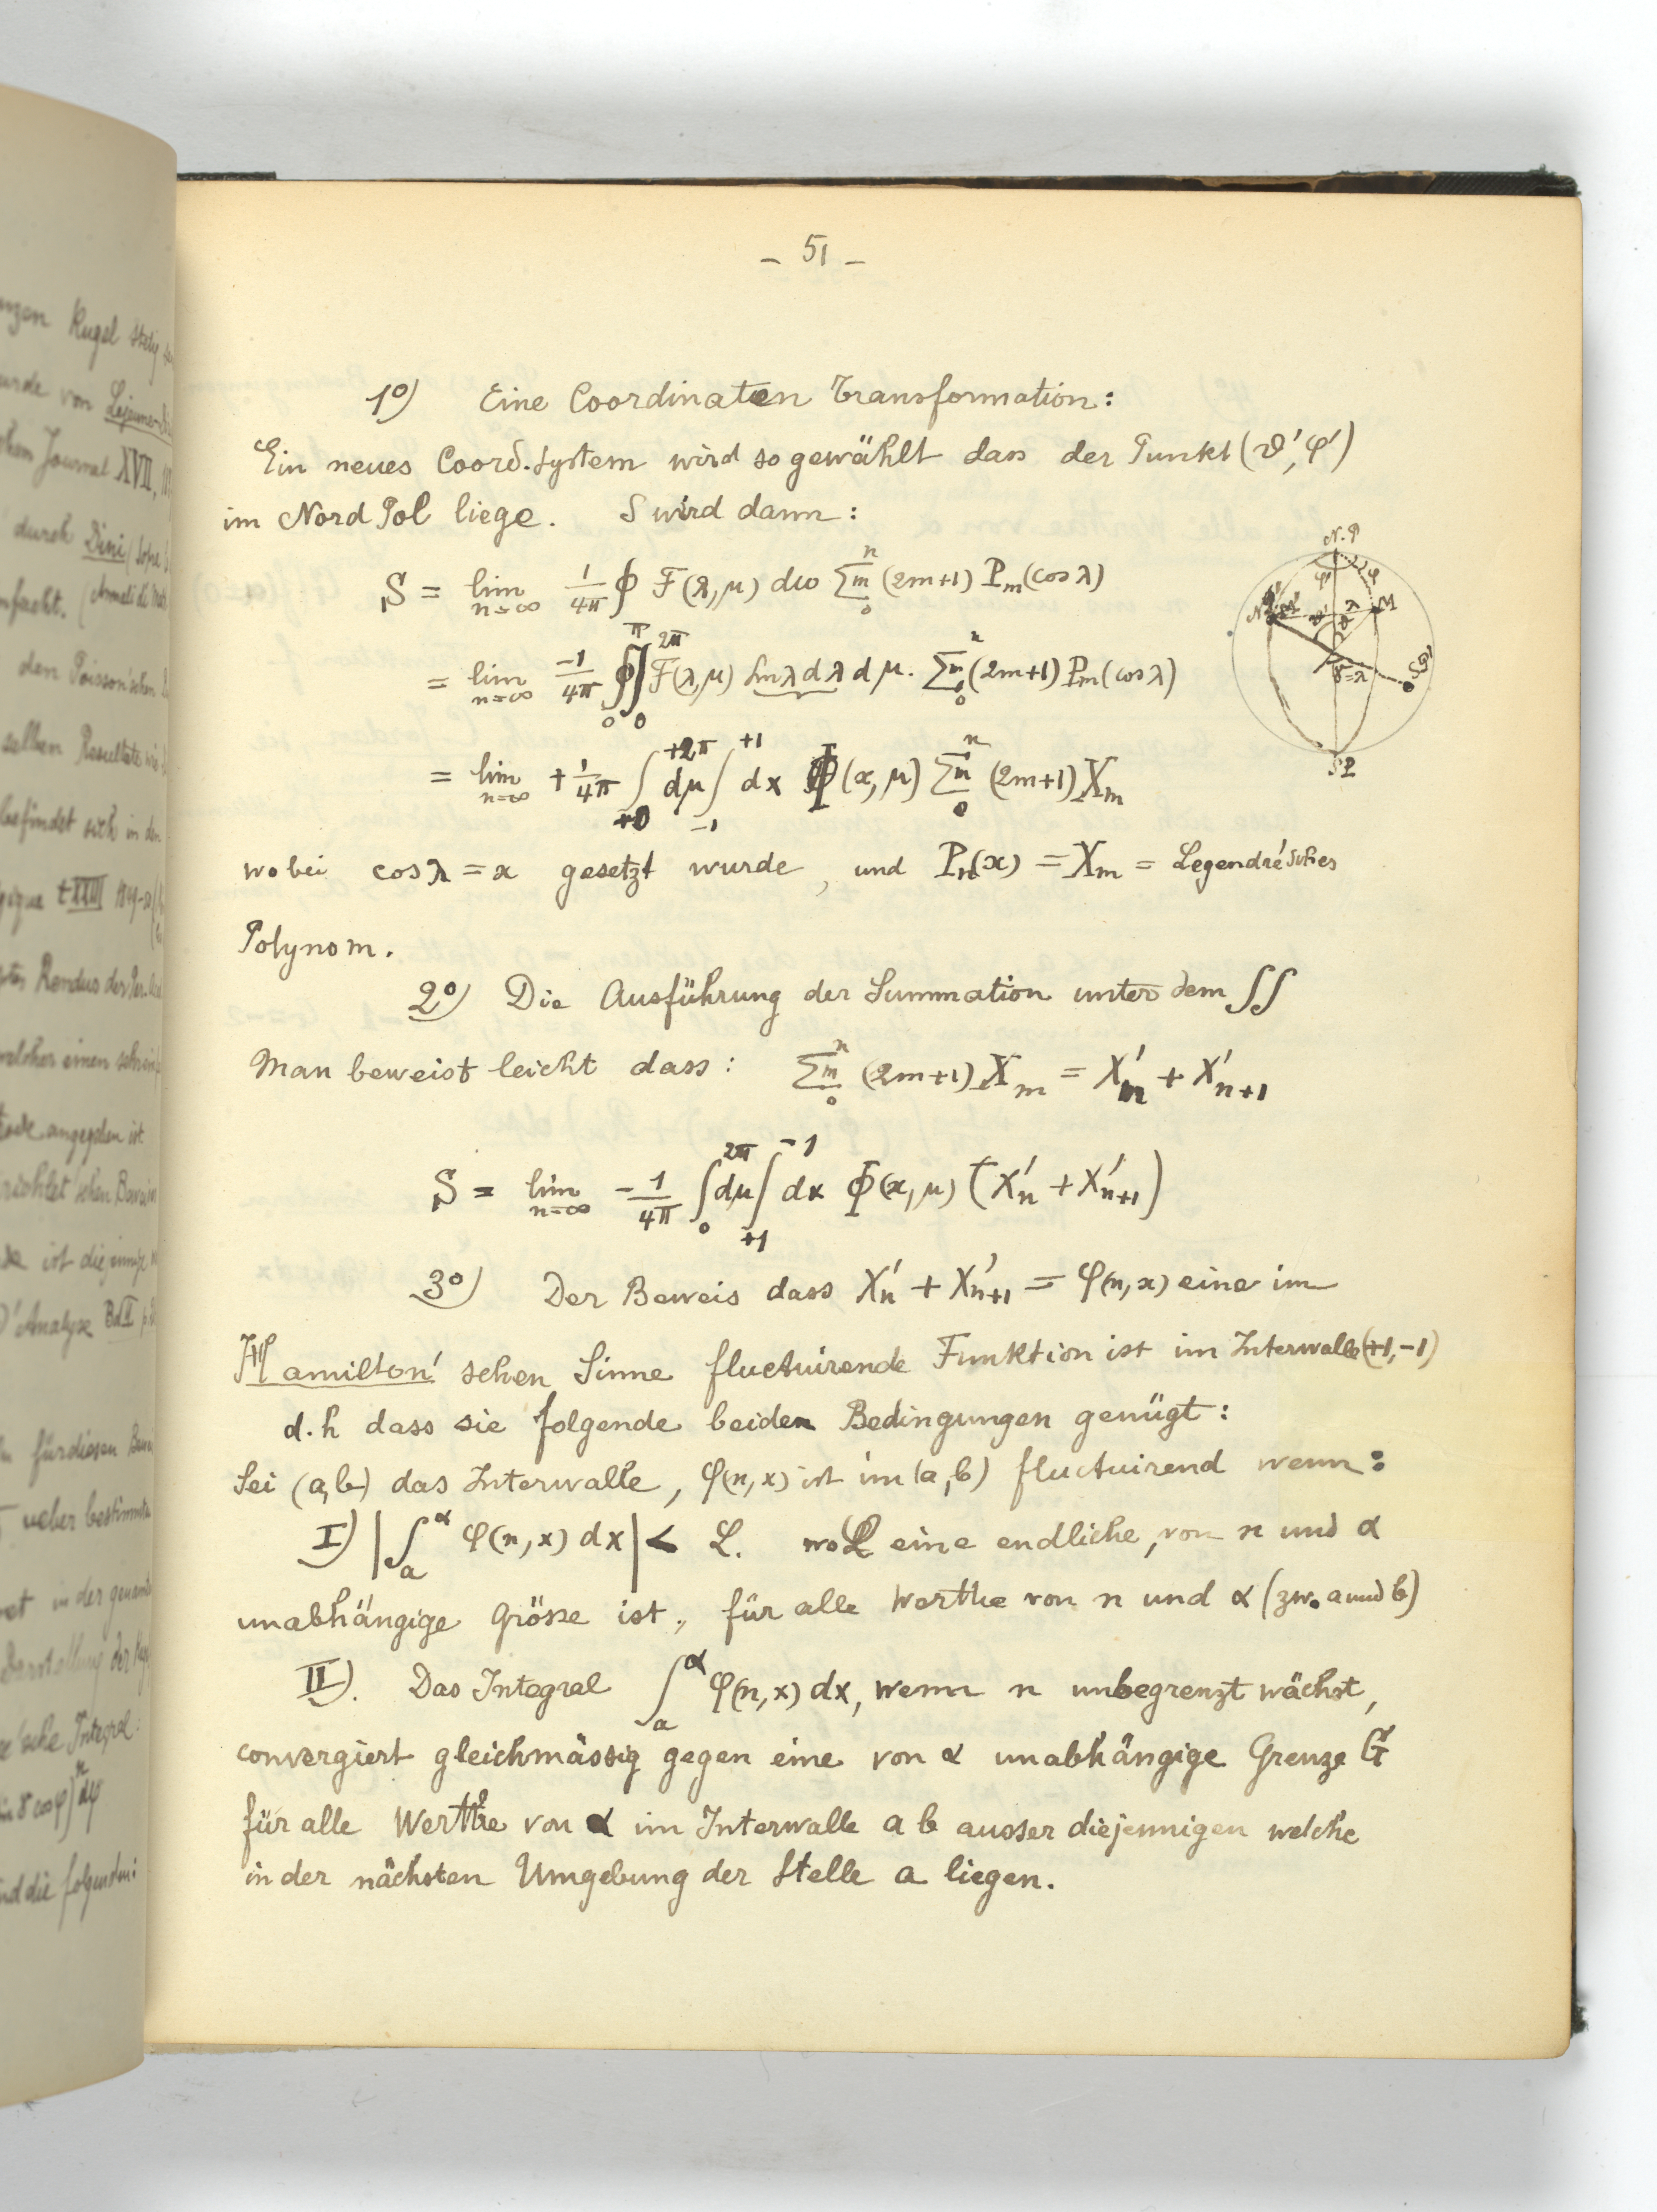 nzen Kugel stetig
urde von Lejeune-Di
chen Journal XVII,
durch Dini (sopra
nfacht. (Annali di Mat
den Poisson'schen
selben Resultate wie
befindet sich in den
gique t XXIII 1849-50
Rendus des
welcher einen
angegeben ist
richlet'schen Beweis
ist diejenige
d'Analyse Bd II p.
für diesen Bew
ueber bestimmte
in der genannt
Darstellung der
sche Integral:
cos φ)ⁿ dφ
nd die folgenden:
– 51 –
1°) Eine Coordinaten Transformation:
Ein neues Coord.System wird so gewählt dass der Punkt (ϑ′, φ′)
im Nord Pol liege. S wird dann:
S = lim n=∞ 1/4π ∮ F(λ, μ) dω Σm 0 n (2m+1) Pm(cos λ)
= lim n=∞ -1/4π ∫0 π ∫0 2π F(λ, μ) Sin λ d λ d μ. Σm 0 n (2m+1) Pm(cos λ)
= lim n=∞ +1/4π ∫+0 +2π dμ ∫-1 +1 dx Φ(x, μ) Σm 0 n (2m+1) Xm
wobei cos λ = x gesetzt wurde, und Pn(x) = Xm = Legendré'sches
Polynom.
2°) Die Ausführung der Summation unter dem ∫∫
Man beweist leicht dass: Σm 0 n (2m+1) Xm = X′n + X′n+1
S = lim n=∞ -1/4π ∫0 2π dμ ∫+1 -1 dx Φ(x, μ) (X′n + X′n+1)
3°) Der Beweis dass X′n + X′n+1 = φ(n, x) eine im
Hamilton'schen Sinne fluctuirende Funktion ist im Intervalle (+1, -1)
d.h dass sie folgende beiden Bedingungen genügt:
Sei (a, b) das Intervalle, φ(n, x) ist im (a, b) fluctuirend wenn:
I) |∫a α φ(n, x) dx| < L. wo L eine endliche, von n und α
unabhängige Grösse ist, für alle Werthe von n und α (zw. a und b)
II). Das Integral ∫a α φ(n, x) dx, wenn n unbegrenzt wächst,
convergiert gleichmässig gegen eine von α unabhängige Grenze G
für alle Werthe von α im Intervalle a b ausser diejennigen welche
in der nächsten Umgebung der Stelle a liegen.
N.P
φ′
φ
M
λ
ϑ′
γ=λ
SP′
SP